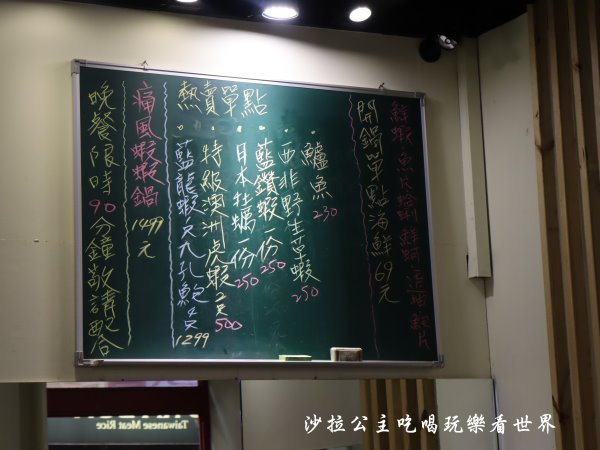 鮮蝦 魚片 蛤蜊 鮮蚵 透抽 鯛魚片
開鍋單點海鮮69元
熱賣單點
鱸魚 230
西非野生草蝦 250
藍鑽蝦一份 250
日本牡蠣一份 250
特級澳洲虎蝦2只 500
藍龍蝦1只九孔鮑4只 1299
痛風蝦蝦鍋 1499元
晚餐限時90分鐘敬請配合
Taiwanese Meat Rice
沙拉公主吃喝玩樂看世界